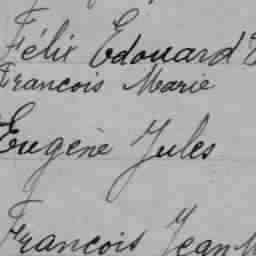 Félix Edouard
Francois Marie
Eugène Jules
Francois Jean